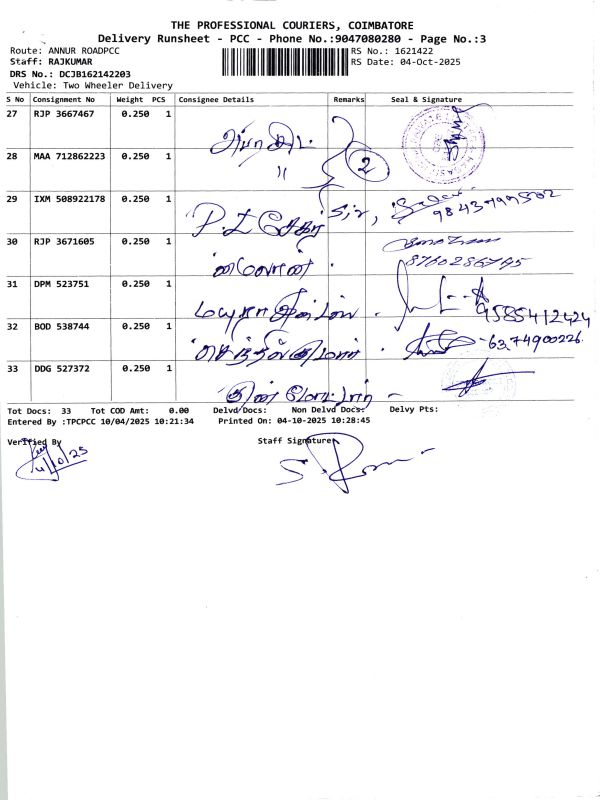 THE PROFESSIONAL COURIERS, COIMBATORE
Delivery Runsheet - PCC - Phone No.:9047080280 - Page No.:3
Route: ANNUR ROADPCC RS No.: 1621422
Staff: RAJKUMAR RS Date: 04-Oct-2025
DRS No.: DCJB162142203
Vehicle: Two Wheeler Delivery
S No Consignment No Weight PCS Consignee Details Remarks Seal & Signature
27 RJP 3667467 0.250 1
28 MAA 712862223 0.250 1 " 2
29 IXM 508922178 0.250 1 Sir,
30 RJP 3671605 0.250 1 8760286795
31 DPM 523751 0.250 1 9585412424
32 BOD 538744 0.250 1 செந்தில்குமார் 6374900226
33 DDG 527372 0.250 1
Tot Docs: 33 Tot COD Amt: 0.00 Delvd Docs: Non Delvd Docs: Delvy Pts:
Entered By :TPCPCC 10/04/2025 10:21:34 Printed On: 04-10-2025 10:28:45
Verified By Staff Signature
4/10/25